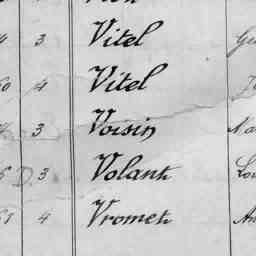 4 3 Vitel
60 4 Vitel
3 Voisin
D 3 Volant
61 4 Vromet